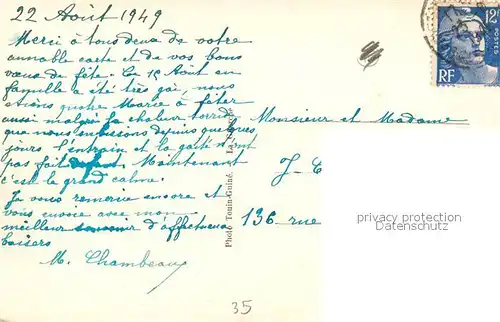 22 Août 1949
Merci à tous deux de votre
aimable carte et de vos bons
vœux de fête. Le 15 Août en
famille a été très gai, nous
étions quatre Marie à fêter
aussi malgré la chaleur torride
que nous subissons depuis quelques
jours l'entrain et la gaîté n'ont
pas fait défaut. Maintenant
c'est le grand calme.
Je vous remercie encore et
vous envoie avec mon
meilleur souvenir d'affectueux
baisers
M. Chambeaux
Photo Tenin-Guiné.
12F
POSTES
RF
Monsieur et Madame
J. C
136 rue
privacy protection
Datenschutz
35